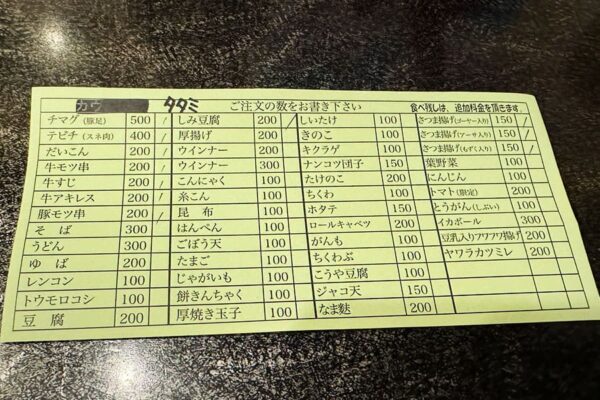 カウ タタミ ご注文の数をお書き下さい 食べ残しは、追加料金を頂きます。
チマグ(豚足) 500 / しみ豆腐 200 / しいたけ 100 さつま揚げ(ゴーヤー入り) 150 /
テビチ(スネ肉) 400 / 厚揚げ 200 きのこ 100 さつま揚げ(アーサ入り) 150 /
だいこん 200 / ウインナー 200 キクラゲ 100 さつま揚げ(もずく入り) 150 /
牛モツ串 200 / ウインナー 300 ナンコツ団子 150 葉野菜 100
牛すじ 200 / こんにゃく 100 たけのこ 200 にんじん 100
牛アキレス 200 / 糸こん 100 ちくわ 100 トマト(限定) 200
豚モツ串 200 / 昆 布 100 ホタテ 150 とうがん(しぶい) 100
そ ば 300 はんぺん 100 ロールキャベツ 200 イカボール 300
うどん 300 ごぼう天 100 がんも 100 豆乳入りフワフワ揚げ 200
ゆ ば 200 たまご 100 ちくわぶ 100 ヤワラカツミレ 200
レンコン 100 じゃがいも 100 こうや豆腐 100
トウモロコシ 100 餅きんちゃく 100 ジャコ天 150
豆 腐 200 厚焼き玉子 100 なま麩 200